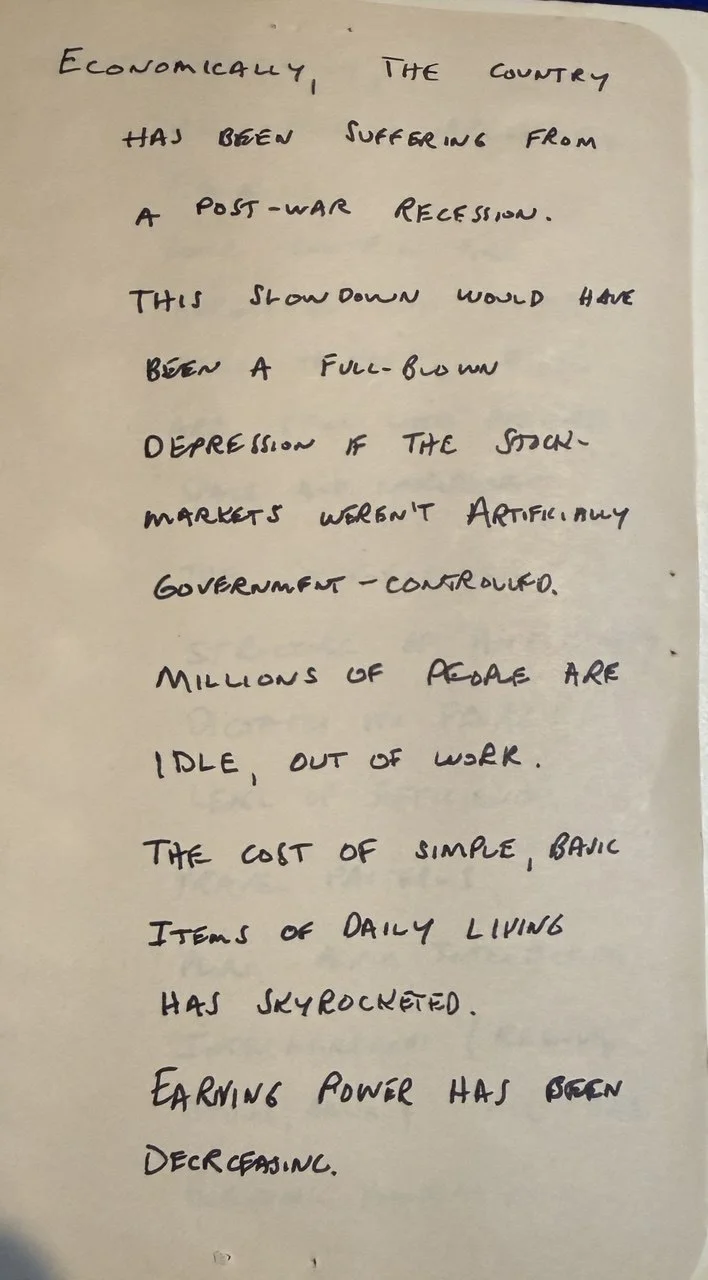 ECONOMICALLY, THE COUNTRY
HAS BEEN SUFFERING FROM
A POST-WAR RECESSION.
THIS SLOWDOWN WOULD HAVE
BEEN A FULL-BLOWN
DEPRESSION IF THE STOCK-
MARKETS WEREN'T ARTIFICIALLY
GOVERNMENT-CONTROLLED.
MILLIONS OF PEOPLE ARE
IDLE, OUT OF WORK.
THE COST OF SIMPLE, BASIC
ITEMS OF DAILY LIVING
HAS SKYROCKETED.
EARNING POWER HAS BEEN
DECRCEASING.